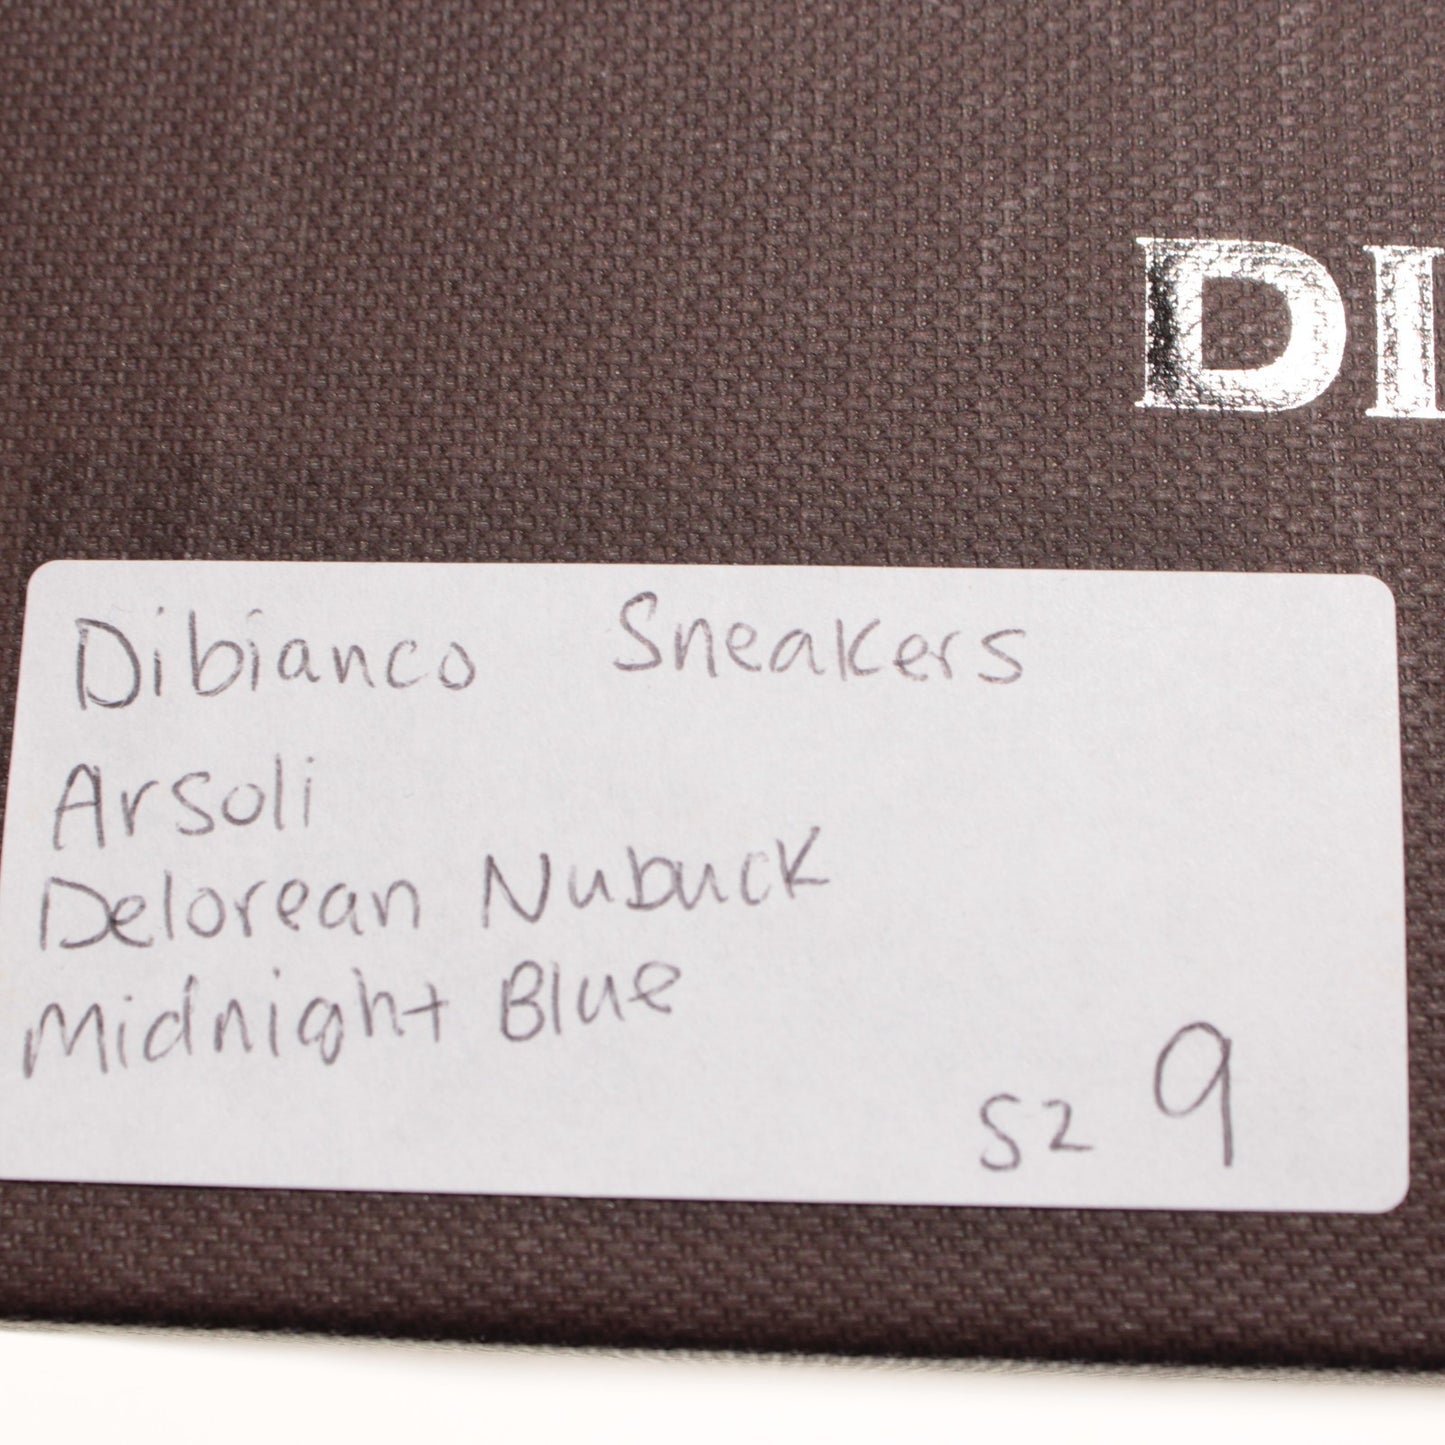 DI
Dibianco Sneakers
Arsoli
Delorean Nubuck
Midnight Blue
Sz 9